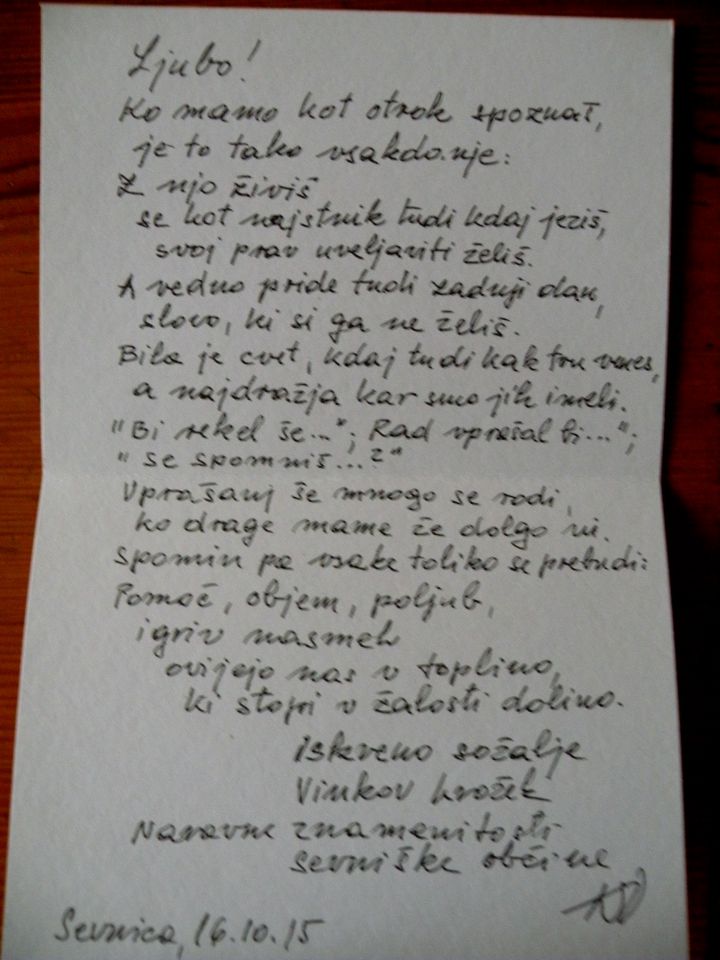 Ljubo!
Ko mamo kot otrok spoznaš,
je to tako vsakdanje:
Z njo živiš
se kot najstnik tudi kdaj jeziš,
svoj prav uveljaviti želiš.
A vedno pride tudi zadnji dan,
slovo, ki si ga ne želiš.
Bila je cvet, kdaj tudi kak trn vmes,
a najdražja kar smo jih imeli.
"Bi rekel še..."; Rad vprašal bi...";
"se spomniš...?"
Vprašanj še mnogo se rodi,
ko drage mame že dolgo ni.
Spomin pa vsake toliko se prebudi:
Pomoč, objem, poljub,
igriv nasmeh
ovijejo nas v toplino,
ki stopi v žalosti dolino.
Iskreno sožalje
Vinkov krožek
Naravne znamenitosti
sevniške občine
Sevnica, 16.10.15